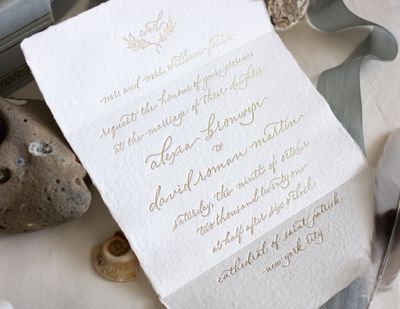 and
mr. and mrs. William
request the honour of your presence
at the marriage of their daughter
alexa bronwyn
to
david roman martin
saturday, the ninth of october
two thousand twenty one
at half after six o'clock
cathedral of saint patrick
new york city